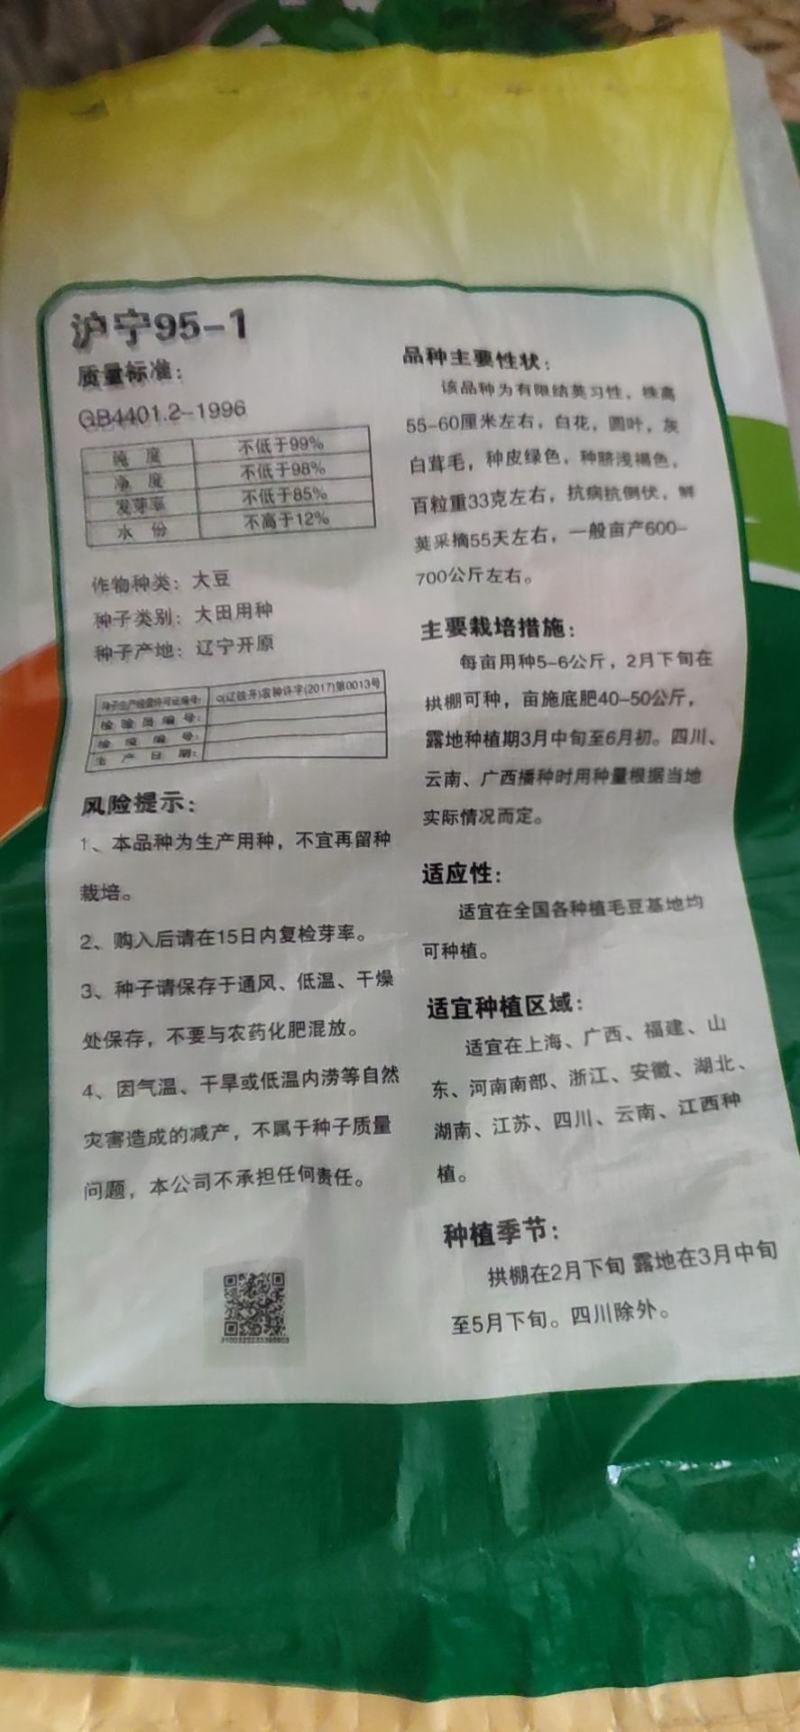 沪宁95-1
质量标准：
GB4401.2-1996
纯 度 不低于99%
净 度 不低于98%
发芽率 不低于85%
水 份 不高于12%
作物种类：大豆
种子类别：大田用种
种子产地：辽宁开原
种子生产经营许可证编号： C(辽铁开)农种许字(2017)第0013号
检 验 员 编 号：
检 疫 编 号：
生 产 日 期：
风险提示：
1、本品种为生产用种，不宜再留种
栽培。
2、购入后请在15日内复检芽率。
3、种子请保存于通风、低温、干燥
处保存，不要与农药化肥混放。
4、因气温、干旱或低温内涝等自然
灾害造成的减产，不属于种子质量
问题，本公司不承担任何责任。
品种主要性状：
该品种为有限结荚习性，株高
55-60厘米左右，白花，圆叶，灰
白茸毛，种皮绿色，种脐浅褐色，
百粒重33克左右，抗病抗倒伏，鲜
荚采摘55天左右，一般亩产600-
700公斤左右。
主要栽培措施：
每亩用种5-6公斤，2月下旬在
拱棚可种，亩施底肥40-50公斤，
露地种植期3月中旬至6月初。四川、
云南、广西播种时用种量根据当地
实际情况而定。
适应性：
适宜在全国各种植毛豆基地均
可种植。
适宜种植区域：
适宜在上海、广西、福建、山
东、河南南部、浙江、安徽、湖北、
湖南、江苏、四川、云南、江西种
植。
种植季节：
拱棚在2月下旬 露地在3月中旬
至5月下旬。四川除外。